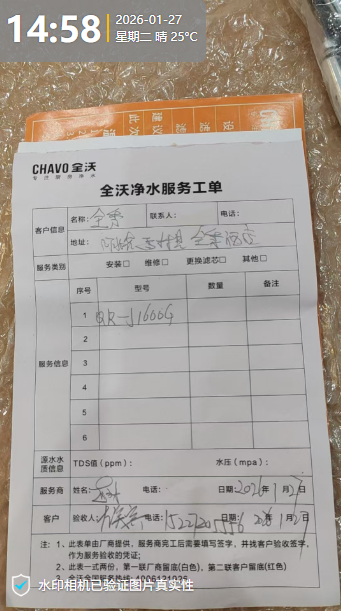 14:58
2026-01-27
星期二 晴 25℃
CHAVO 全沃
专注健康净水
全沃净水服务工单
客户信息
名称：全季
联系人：
电话：
地址：全季酒店
服务类别
安装□ 维修□ 更换滤芯□ 其他□
服务信息
序号 型号 数量 备注
1 QR-J1600G
2
3
4
5
6
源水水质信息
TDS值（ppm）：
水压（mpa）：
服务商
姓名：
电话：
日期：2026年1月27日
客户
验收人：
电话：
日期：
注：1、此表单由厂商提供，服务商完工后需要填写签字，并找客户验收签字，
作为服务的凭证；
2、此表一式两份，第一联厂商留底(白色)、第二联客户留底(红色)
3、全沃全国服务热线：4006121023
水印相机已验证图片真实性